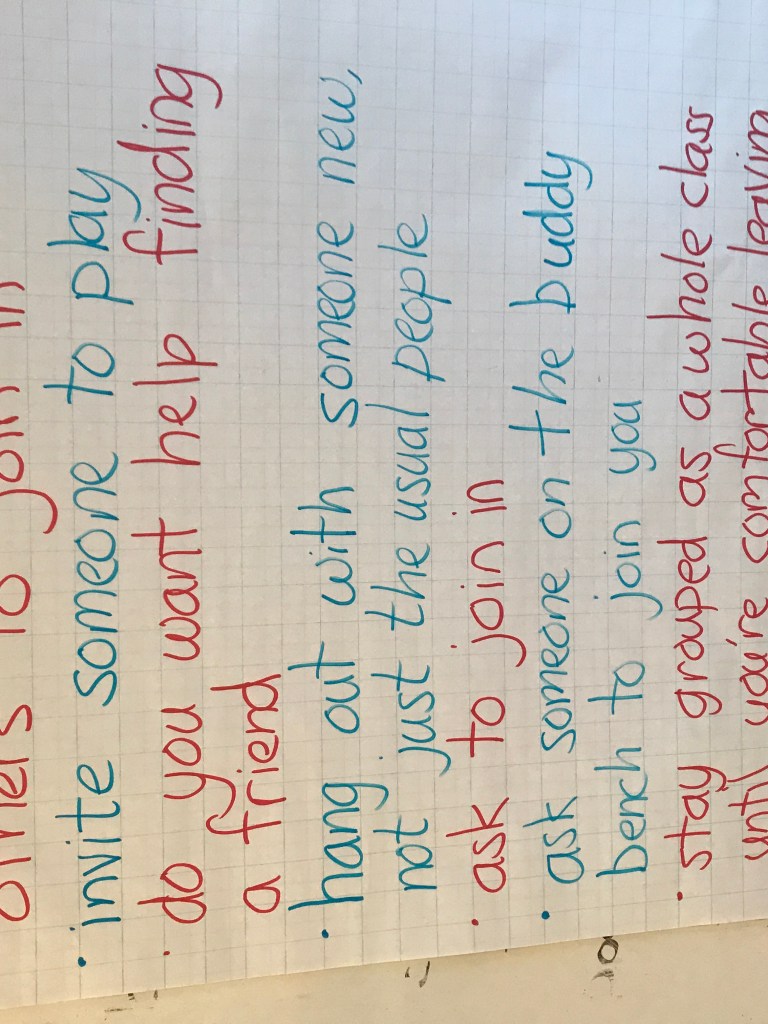 others to join in
• invite someone to play
• do you want help finding
a friend
• hang out with someone new,
not just the usual people
• ask to join in
• ask someone on the buddy
bench to join you
• stay grouped as a whole class
until you're comfortable leaving